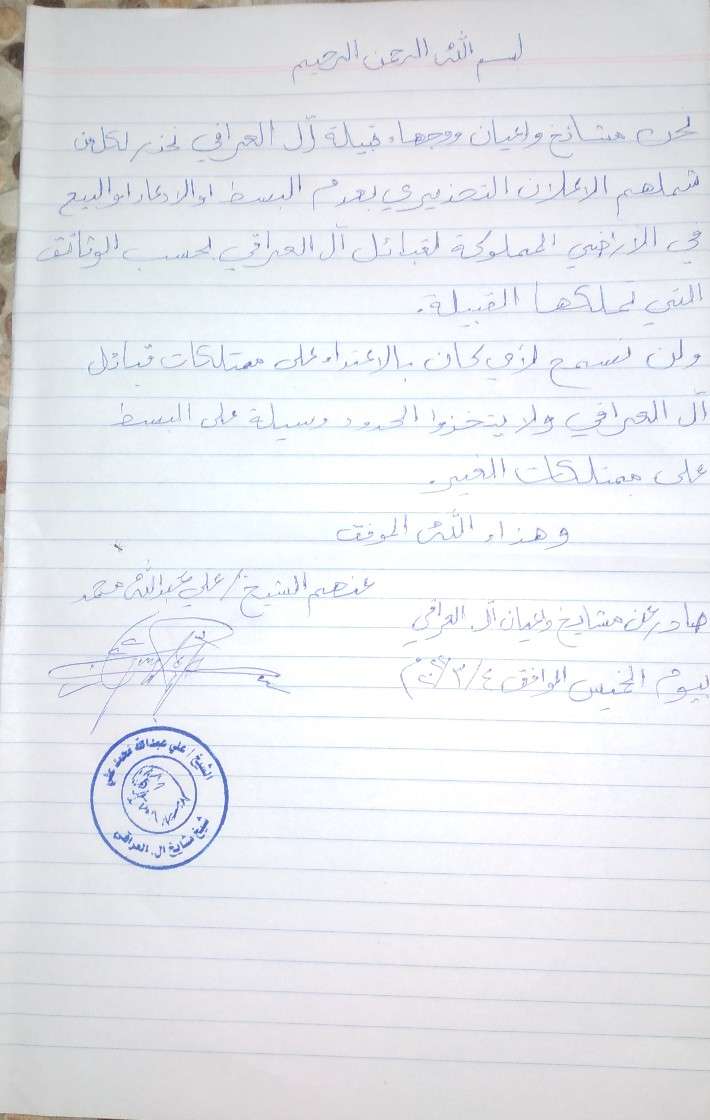 بسم الله الرحمن الرحيم
نحن مشائخ واعيان ووجهاء قبيلة آل العراقي نحذر لكل من
شملهم الاعلان التحذيري بعدم البسط او الادعاء او البيع
في الأراضي المملوكة لقبائل آل العراقي بحسب الوثائق
التي تملكها القبيلة.
ولن نسمح لأي كان بالاعتداء على ممتلكات قبائل
آل العراقي ولا يتخذوا الحدود وسيلة على البسط
على ممتلكات الغير.
وهذا والله الموفق
عنهم الشيخ / علي عبدالله محمد
صادر عن مشايخ واعيان آل العراقي
بيوم الخميس الموافق ٤/٣/
الشيخ / علي عبدالله محمد علي
شيخ مشايخ ال العراقي